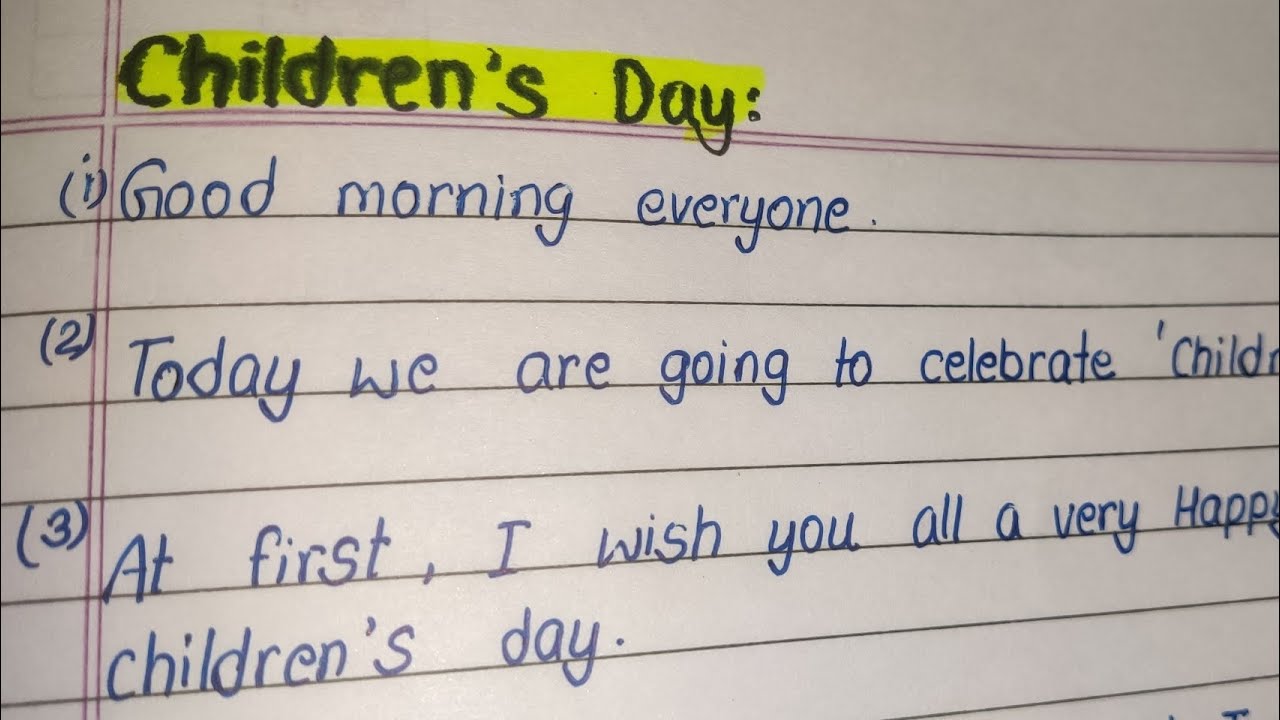 Children's Day:
(1) Good morning everyone.
(2) Today we are going to celebrate 'Child
(3) At first, I wish you all a very Happy
children's day.